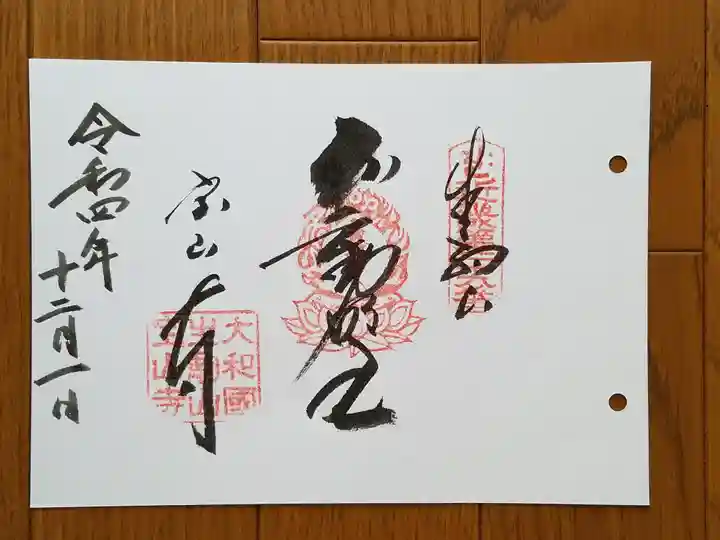 生駒山
不動明王
宝山寺
大和國
生駒山
宝山寺
令和四年
十二月一日